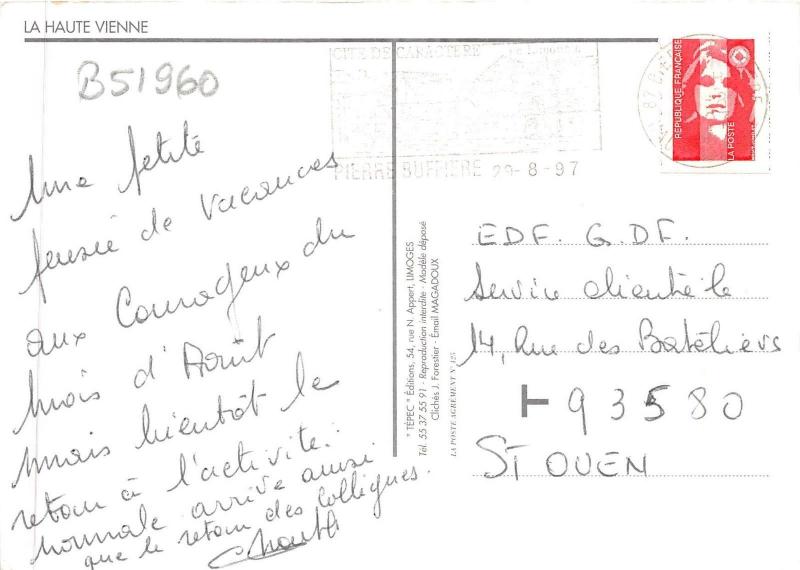 LA HAUTE VIENNE
B51960
Une petite
pensée de vacances
aux Courageux du
mois d'Août
mais bientôt le
retour à l'activité
normale arrive ainsi
que le retour des collègues.
CITE DE CARACTERE
PIERRE BUFFIERE 29-8-97
RÉPUBLIQUE FRANÇAISE
LA POSTE
" TÉPEC " Éditions, 54, rue N. Appert, LIMOGES
Tél. 55 37 55 91 - Reproduction interdite - Modèle déposé
Clichés J. Forestier - Émail MAGADOUX
LA POSTE AGREMENT N° 125
EDF. G.DF.
Service clientèle
14, Rue des Batéliers
93580
ST OUEN